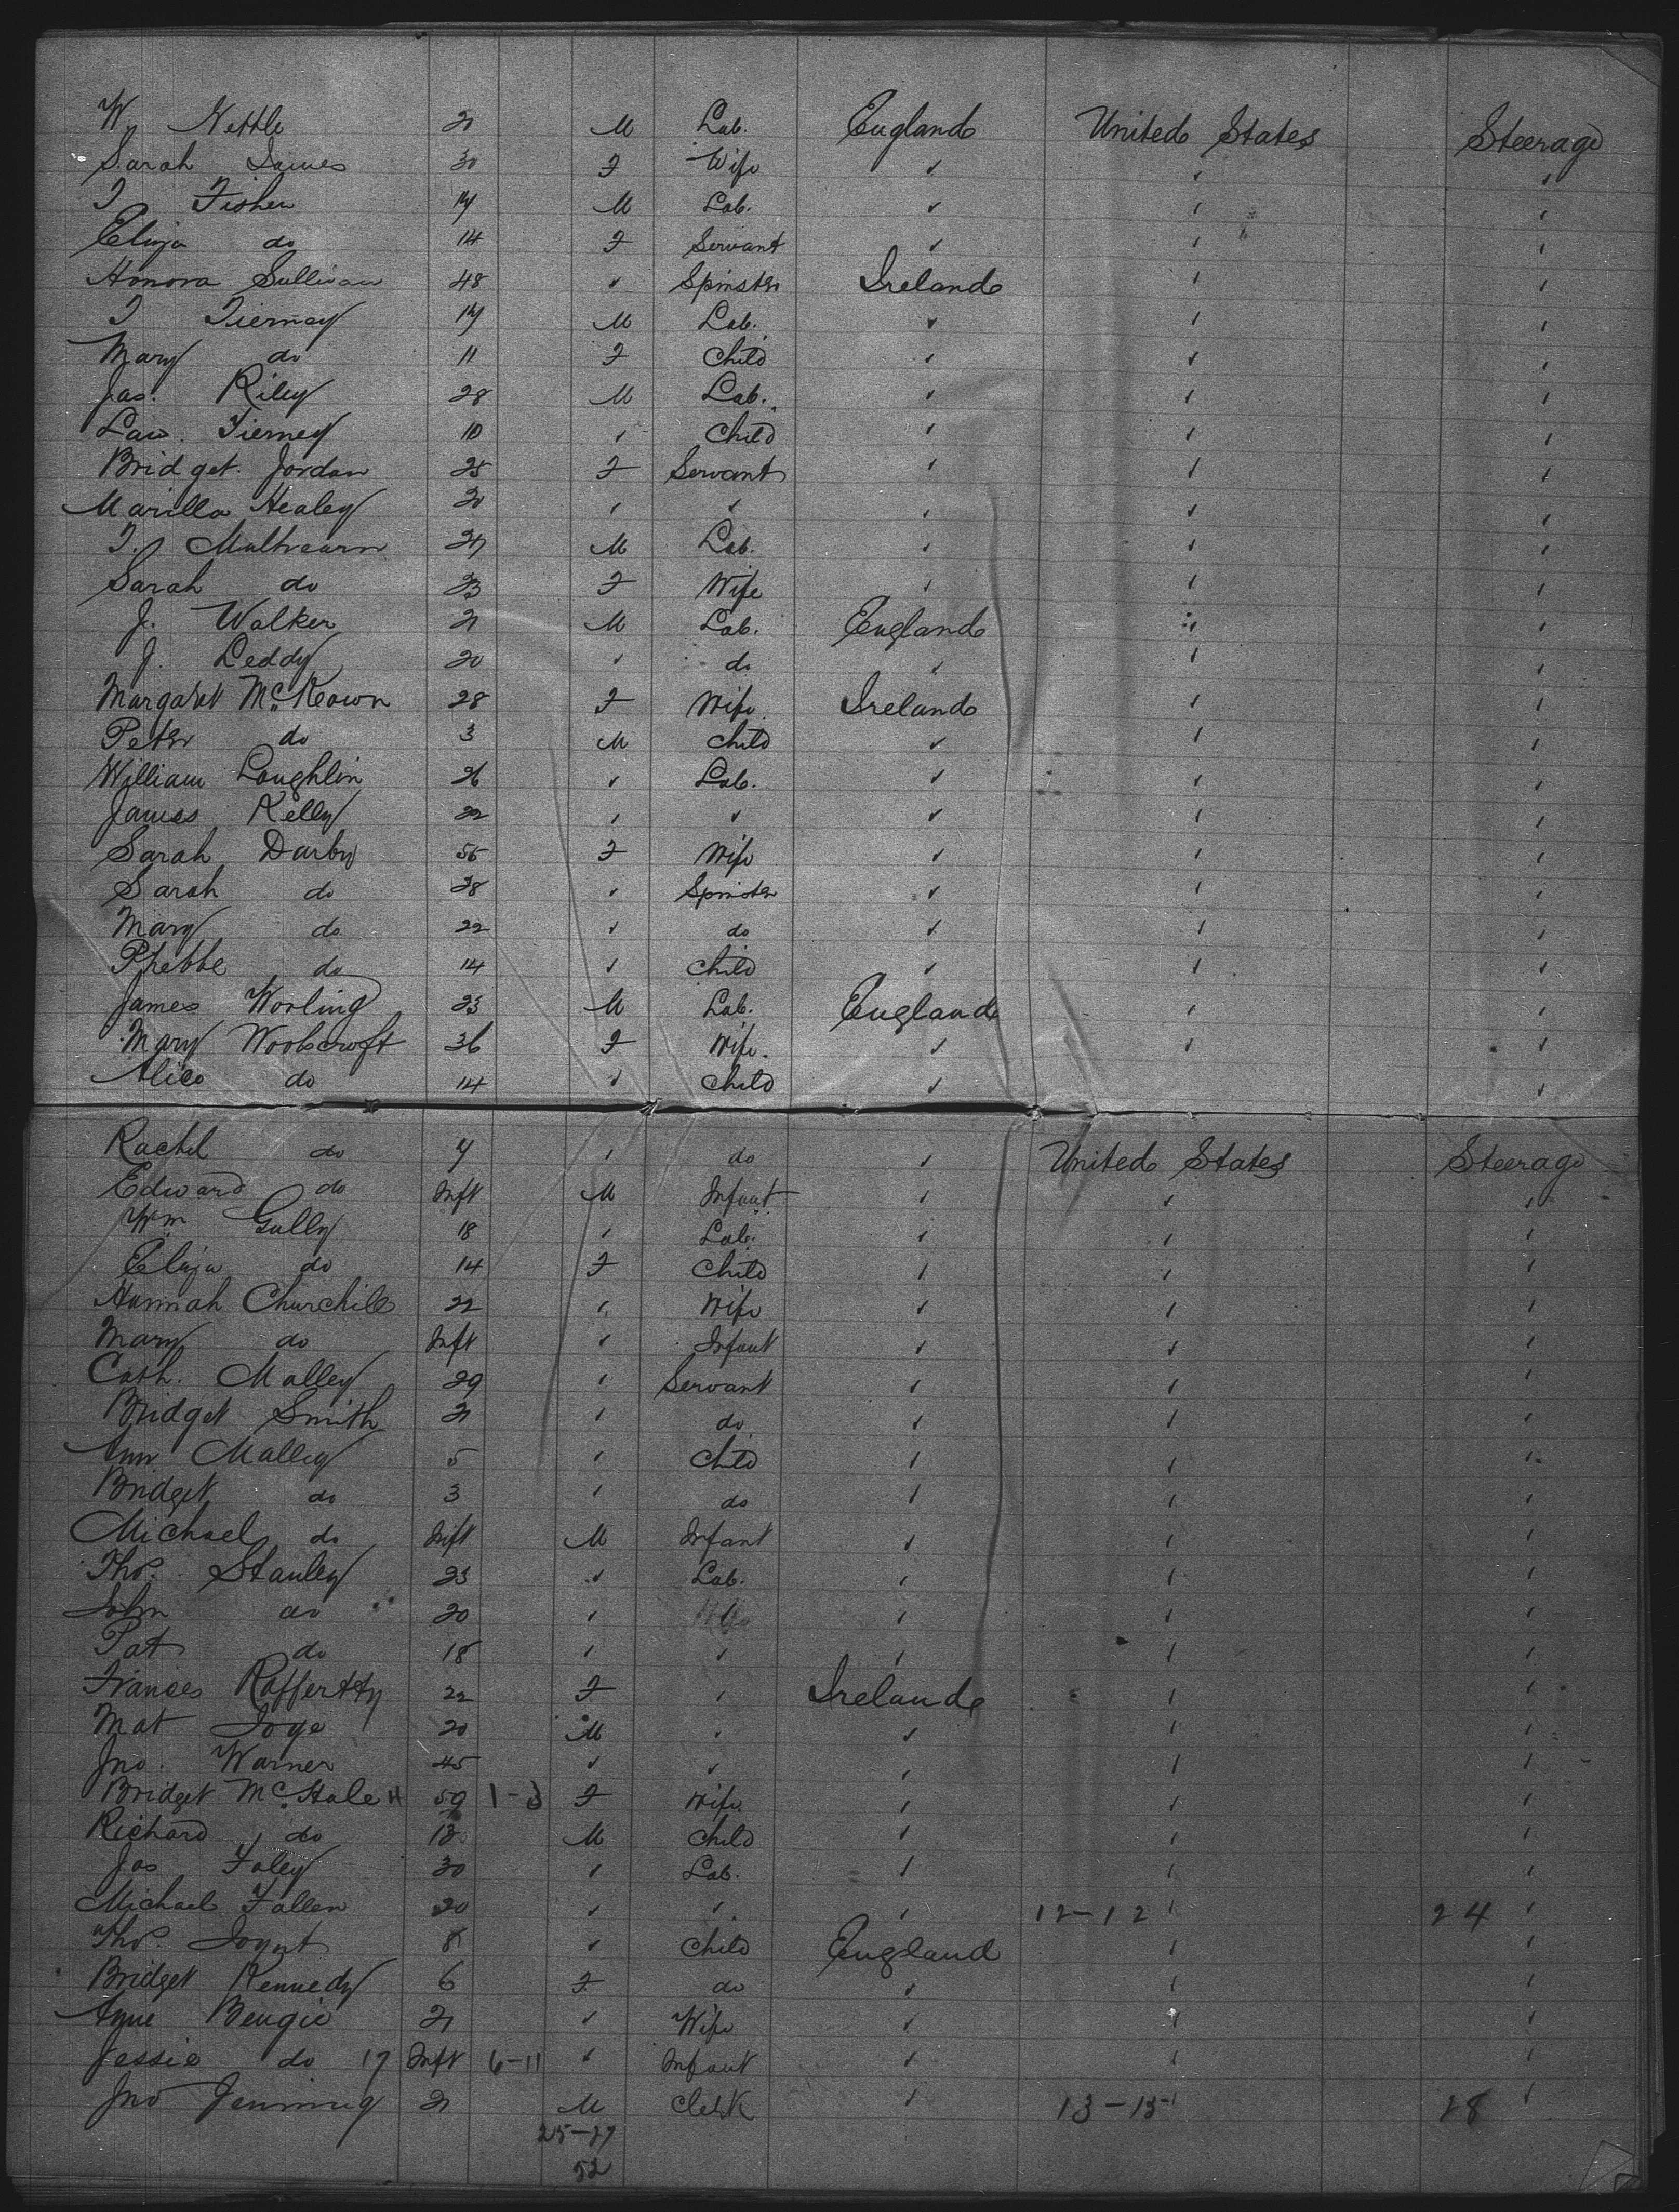 W. Nettle 21 M Lab. England United States Steerage
Sarah James 30 F Wife ✓ ✓ ✓
T Fisher 14 M Lab. ✓ ✓ ✓
Eliza do 14 F Servant ✓ ✓ ✓
Honora Sullivan 48 ✓ Spinster Ireland ✓ ✓
T Tierney 14 M Lab. ✓ ✓ ✓
Mary do 11 F Child ✓ ✓ ✓
Jas. Riley 28 M Lab. ✓ ✓ ✓
Law. Tierney 10 ✓ Child ✓ ✓ ✓
Bridget Jordan 25 F Servant ✓ ✓ ✓
Marilla Healey 20 ✓ ✓ ✓ ✓ ✓
T. 24 M Lab. ✓ ✓ ✓
Sarah do 23 F Wife ✓ ✓ ✓
J. Walker 21 M Lab. England ✓ ✓
J. Leddy 20 ✓ do ✓ ✓ ✓
Margaret McKeown 28 F Wife Ireland ✓ ✓
Peter do 3 M Child ✓ ✓ ✓
William Loughlin 26 ✓ Lab. ✓ ✓ ✓
James Kelly 22 ✓ ✓ ✓ ✓ ✓
Sarah Darby 56 F Wife ✓ ✓ ✓
Sarah do 28 ✓ Spinster ✓ ✓ ✓
Mary do 22 ✓ do ✓ ✓ ✓
Phebbe do 14 ✓ Child ✓ ✓ ✓
James Worling 23 M Lab. England ✓ ✓
Mary Woolscroft 36 F Wife. ✓ ✓ ✓
Alice do 14 ✓ Child ✓ ✓
Rachel do 4 ✓ do ✓ United States Steerage
Edward do Inft M Infant ✓ ✓ ✓
Wm Gully 18 ✓ Lab. ✓ ✓ ✓
Eliza do 14 F Child ✓ ✓ ✓
Hannah Churchill 22 ✓ Wife ✓ ✓ ✓
Mary do Inft ✓ Infant ✓ ✓ ✓
Cath. Malley 29 ✓ Servant ✓ ✓ ✓
Bridget Smith 21 ✓ do ✓ ✓ ✓
Ann Malley 5 ✓ Child ✓ ✓ ✓
Bridget do 3 ✓ do ✓ ✓ ✓
Michael do Inft M Infant ✓ ✓ ✓
Thos. Stanley 23 ✓ Lab. ✓ ✓ ✓
John do 20 ✓ ✓ ✓ ✓ ✓
Pat do 18 ✓ ✓ ✓ ✓ ✓
Frances Raffertty 22 F ✓ Ireland ✓ ✓
Mat Joge 20 M ✓ ✓ ✓ ✓
Jno. Warner 45 ✓ ✓ ✓ ✓ ✓
Bridget McHale H 59 1-3 F Wife ✓ ✓ ✓
Richard do 13 M Child ✓ ✓ ✓
Jas Foley 30 ✓ Lab. ✓ ✓ ✓
Michael Fallen 20 ✓ ✓ ✓ 12-12 ✓ 24 ✓
Thos. Joynt 8 ✓ Child England ✓ ✓
Bridget Kennedy 6 F do ✓ ✓ ✓
Anne Bengie 21 ✓ Wife ✓ ✓ ✓
Jessie do 17 Inft 6-11 ✓ Infant ✓ ✓ ✓
Jno Jenning 21 M Clerk ✓ 13-15 ✓ 28 ✓
25-27
52